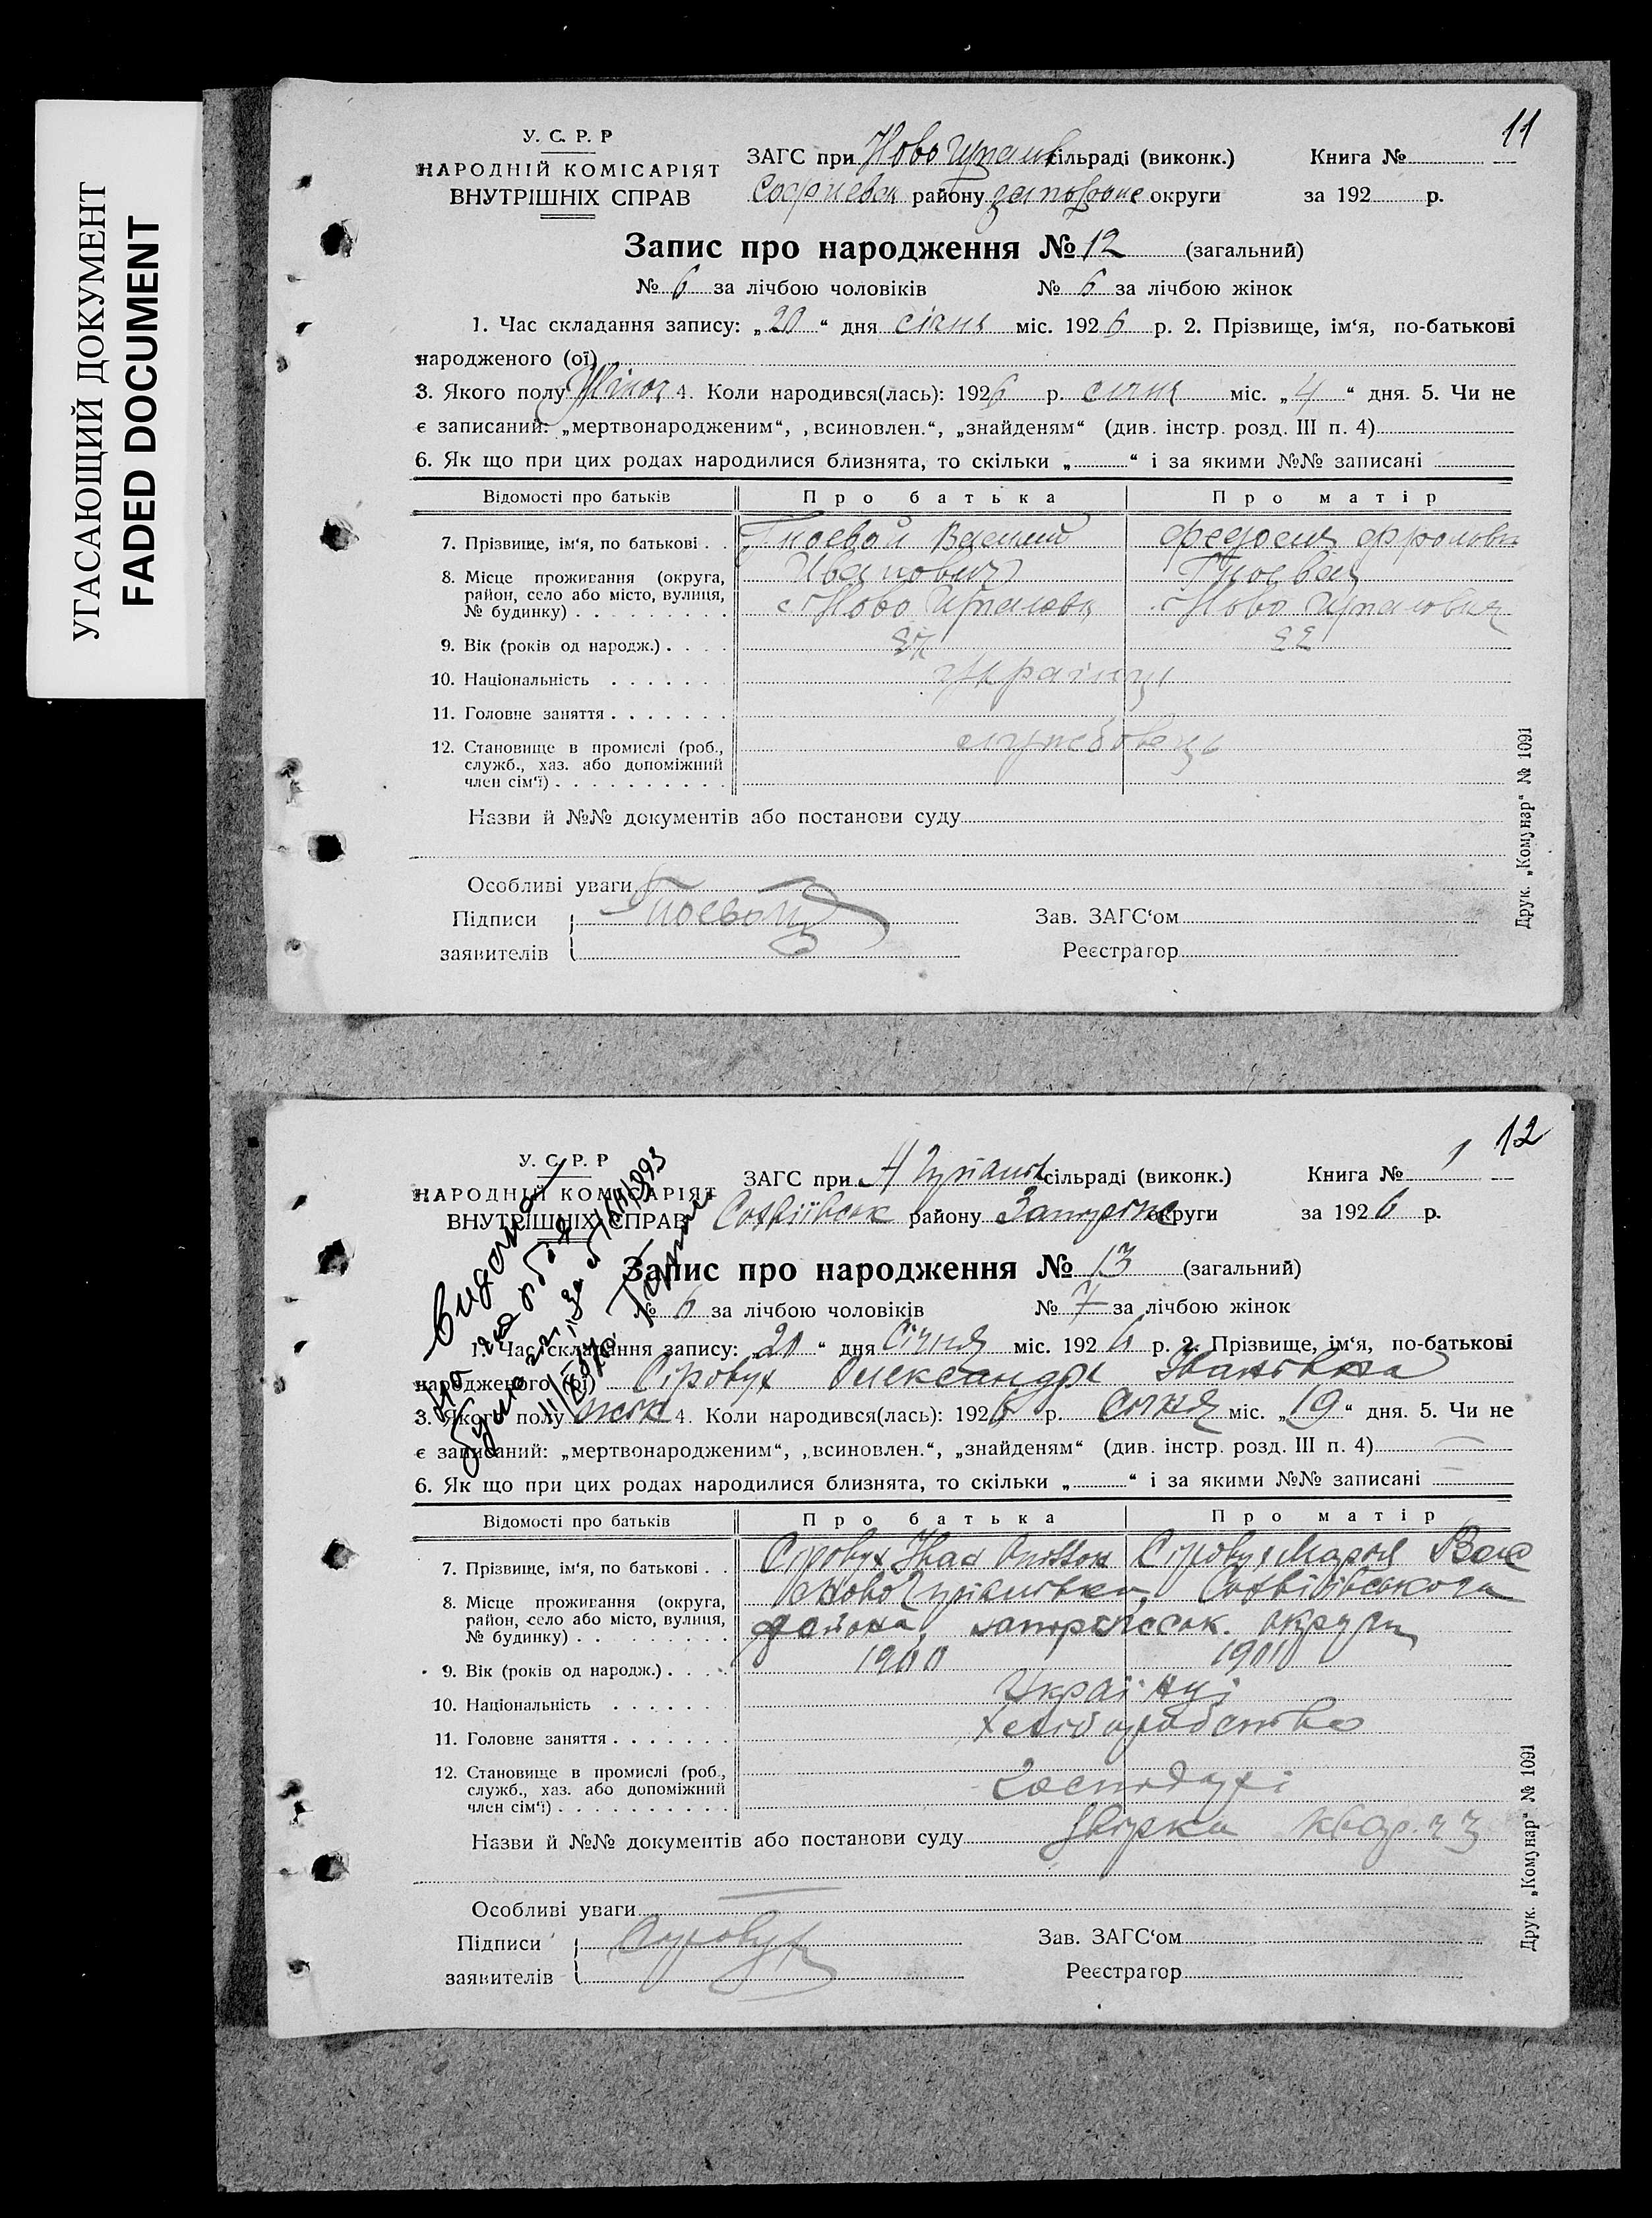 УГАСАЮЩИЙ ДОКУМЕНТ
FADED DOCUMENT
11
У. С. Р. Р
НАРОДНІЙ КОМІСАРІЯТ
ВНУТРІШНІХ СПРАВ
ЗАГС при Ново сільраді (виконк.) Книга №
району округи за 192 р.
Запис про народження № 12 (загальний)
№ 6 за лічбою чоловіків № 6 за лічбою жінок
1. Час складання запису: „20“ дня січня міс. 1926 р. 2. Прізвище, ім‘я, по-батькові
народженого (ої)
3. Якого полу Жіноч 4. Коли народився(лась): 1926 р. січня міс. „4“ дня. 5. Чи не
є записаний: „мертвонародженим“, „всиновлен.“, „знайденям“ (див. інстр. розд. III п. 4)
6. Як що при цих родах народилися близнята, то скільки „ “ і за якими №№ записані
Відомості про батьків Про батька Про матір
7. Прізвище, ім‘я, по батькові . . Гноевой Василий Федосия Фроловн
8. Місце проживання (округа, Иванович Гноевая
район, село або місто, вулиця, с Ново с Ново
№ будинку)
9. Вік (років од народж.) 22
10. Національність Українці
11. Головне заняття
12. Становище в промислі (роб., службовець
служб., хаз. або допоміжний
член сім‘ї)
Назви й №№ документів або постанови суду
Особливі уваги
Підписи Гноевой Зав. ЗАГС‘ом
заявителів Реєстратор
Друк. „Комунар“ № 1091
12
У. С. Р. Р
НАРОДНІЙ КОМІСАРІЯТ
ВНУТРІШНІХ СПРАВ
ЗАГС при сільраді (виконк.) Книга № 1
Софіївськ району округи за 1926 р.
Запис про народження № 13 (загальний)
№ 6 за лічбою чоловіків № 7 за лічбою жінок
1. Час складання запису: „20“ дня Січня міс. 1926 р. 2. Прізвище, ім‘я, по-батькові
народженого (ої) Сіровух Олександра Іванівна
3. Якого полу жін 4. Коли народився(лась): 1926 р. Січня міс. „19“ дня. 5. Чи не
є записаний: „мертвонародженим“, „всиновлен.“, „знайденям“ (див. інстр. розд. III п. 4)
6. Як що при цих родах народилися близнята, то скільки „ “ і за якими №№ записані
Відомості про батьків Про батька Про матір
7. Прізвище, ім‘я, по батькові . . Сіровух Іван Сіровух Марія Вас
8. Місце проживання (округа, Софіївського
район, село або місто, вулиця, района, округи
№ будинку)
9. Вік (років од народж.) 1900 1901
10. Національність Українці
11. Головне заняття Хліборобство
12. Становище в промислі (роб., Господарі
служб., хаз. або допоміжний
член сім‘ї)
Назви й №№ документів або постанови суду
Особливі уваги
Підписи Сіровух Зав. ЗАГС‘ом
заявителів Реєстратор
Друк. „Комунар“ № 1091